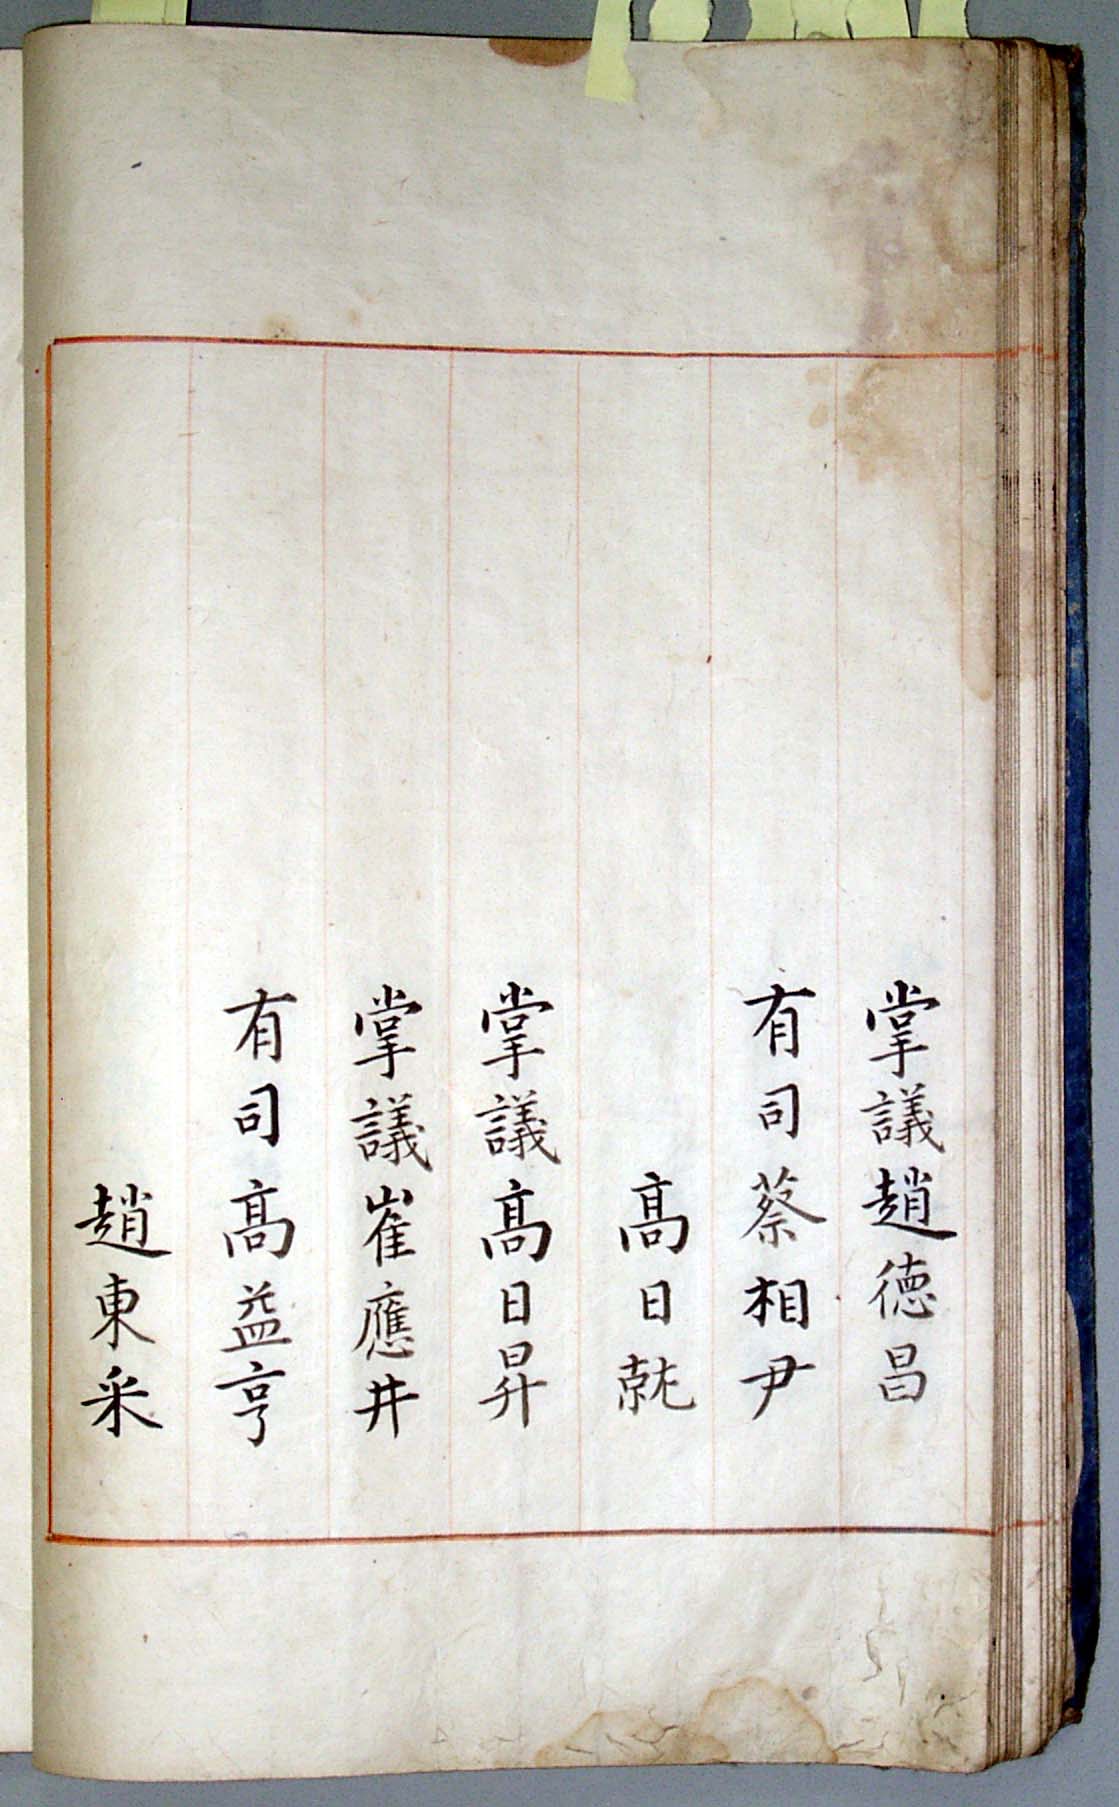 掌議趙德昌
有司蔡相尹
高日就
掌議高日昇
掌議崔應井
有司高益亨
趙東采